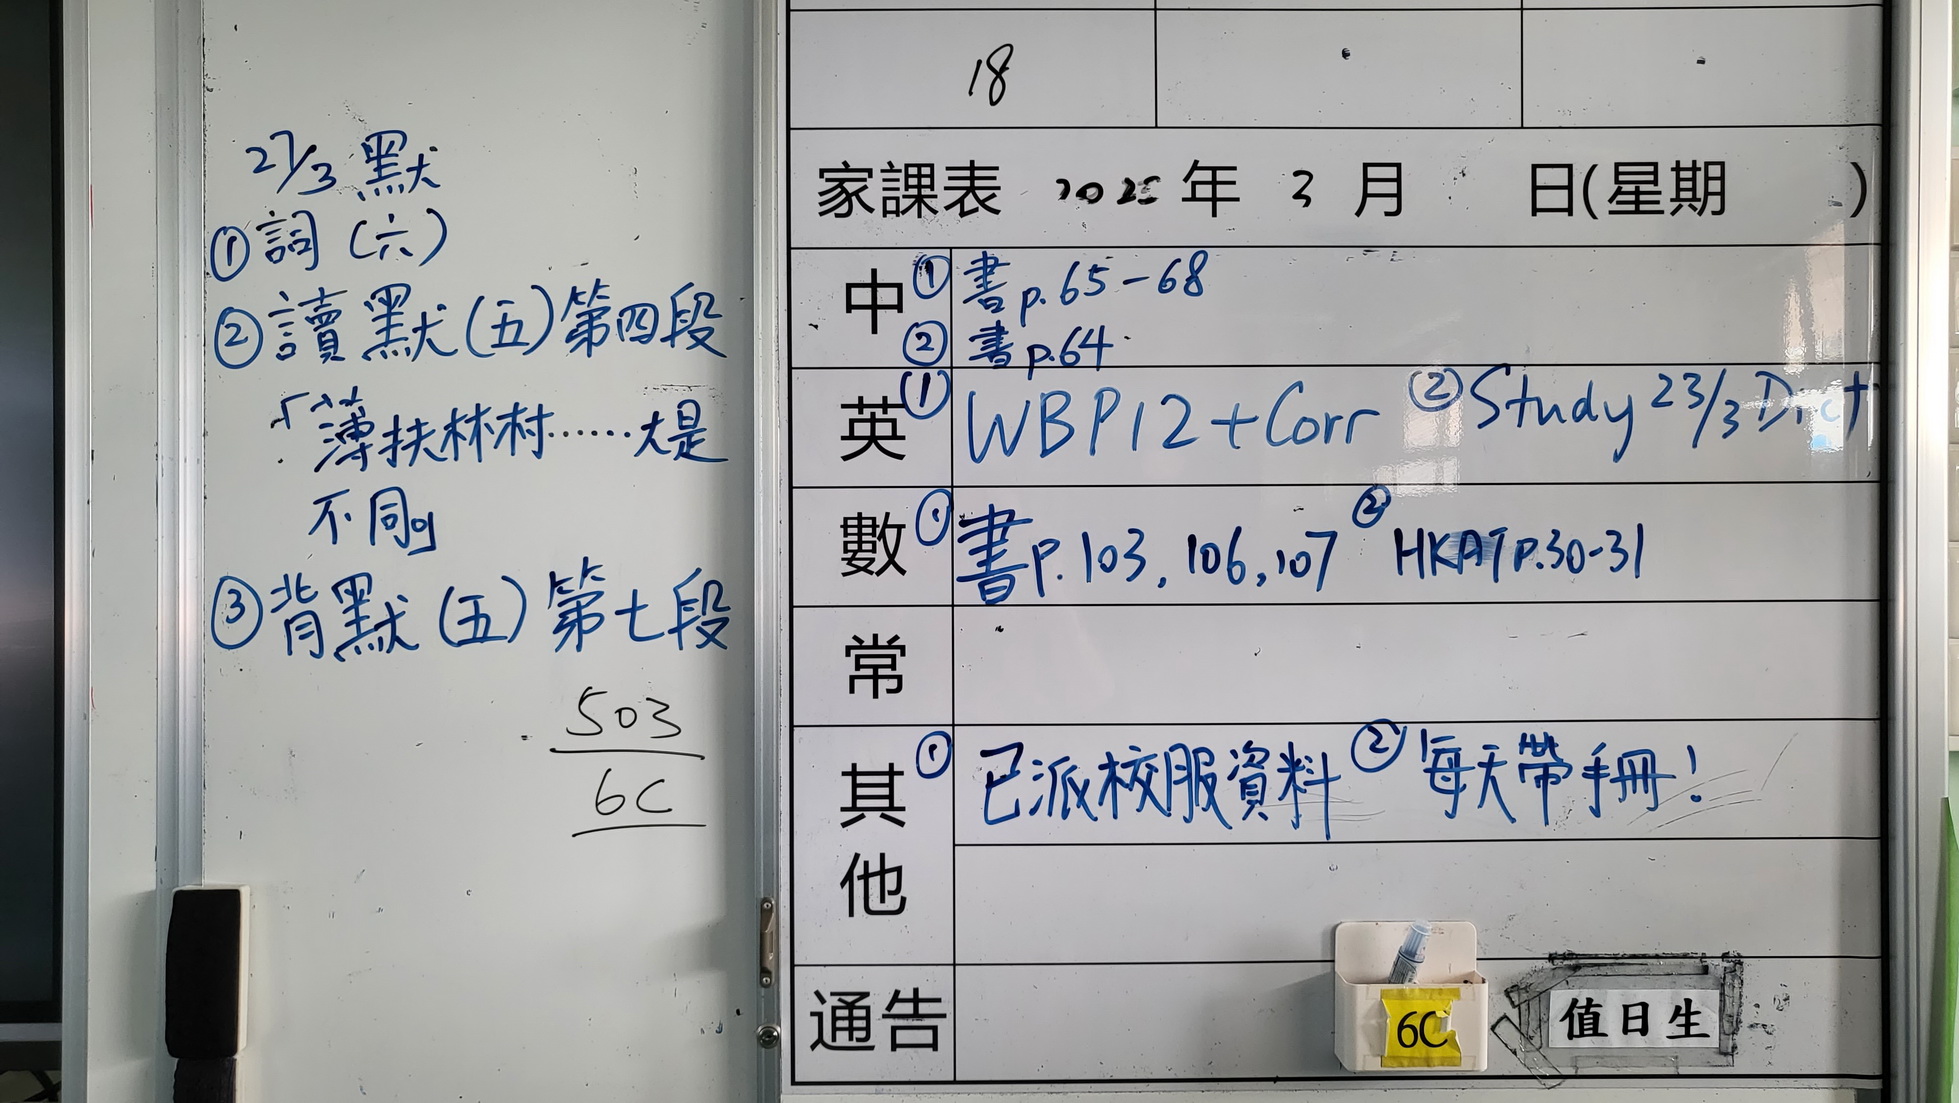 27/3 默
①詞(六)
②讀默(五)第四段
「薄扶林村……大是
不同」
③背默(五)第七段
503
6C
18
家課表 2025年 3月 日(星期 )
中 ①書p.65-68
②書p.64
英 ① WBP12+Corr ②Study 23/3 Dict
數 ①書p.103,106,107 ②HKAT p.30-31
常
其他 ①已派校服資料 ②每天帶手冊!
通告
6C
值日生